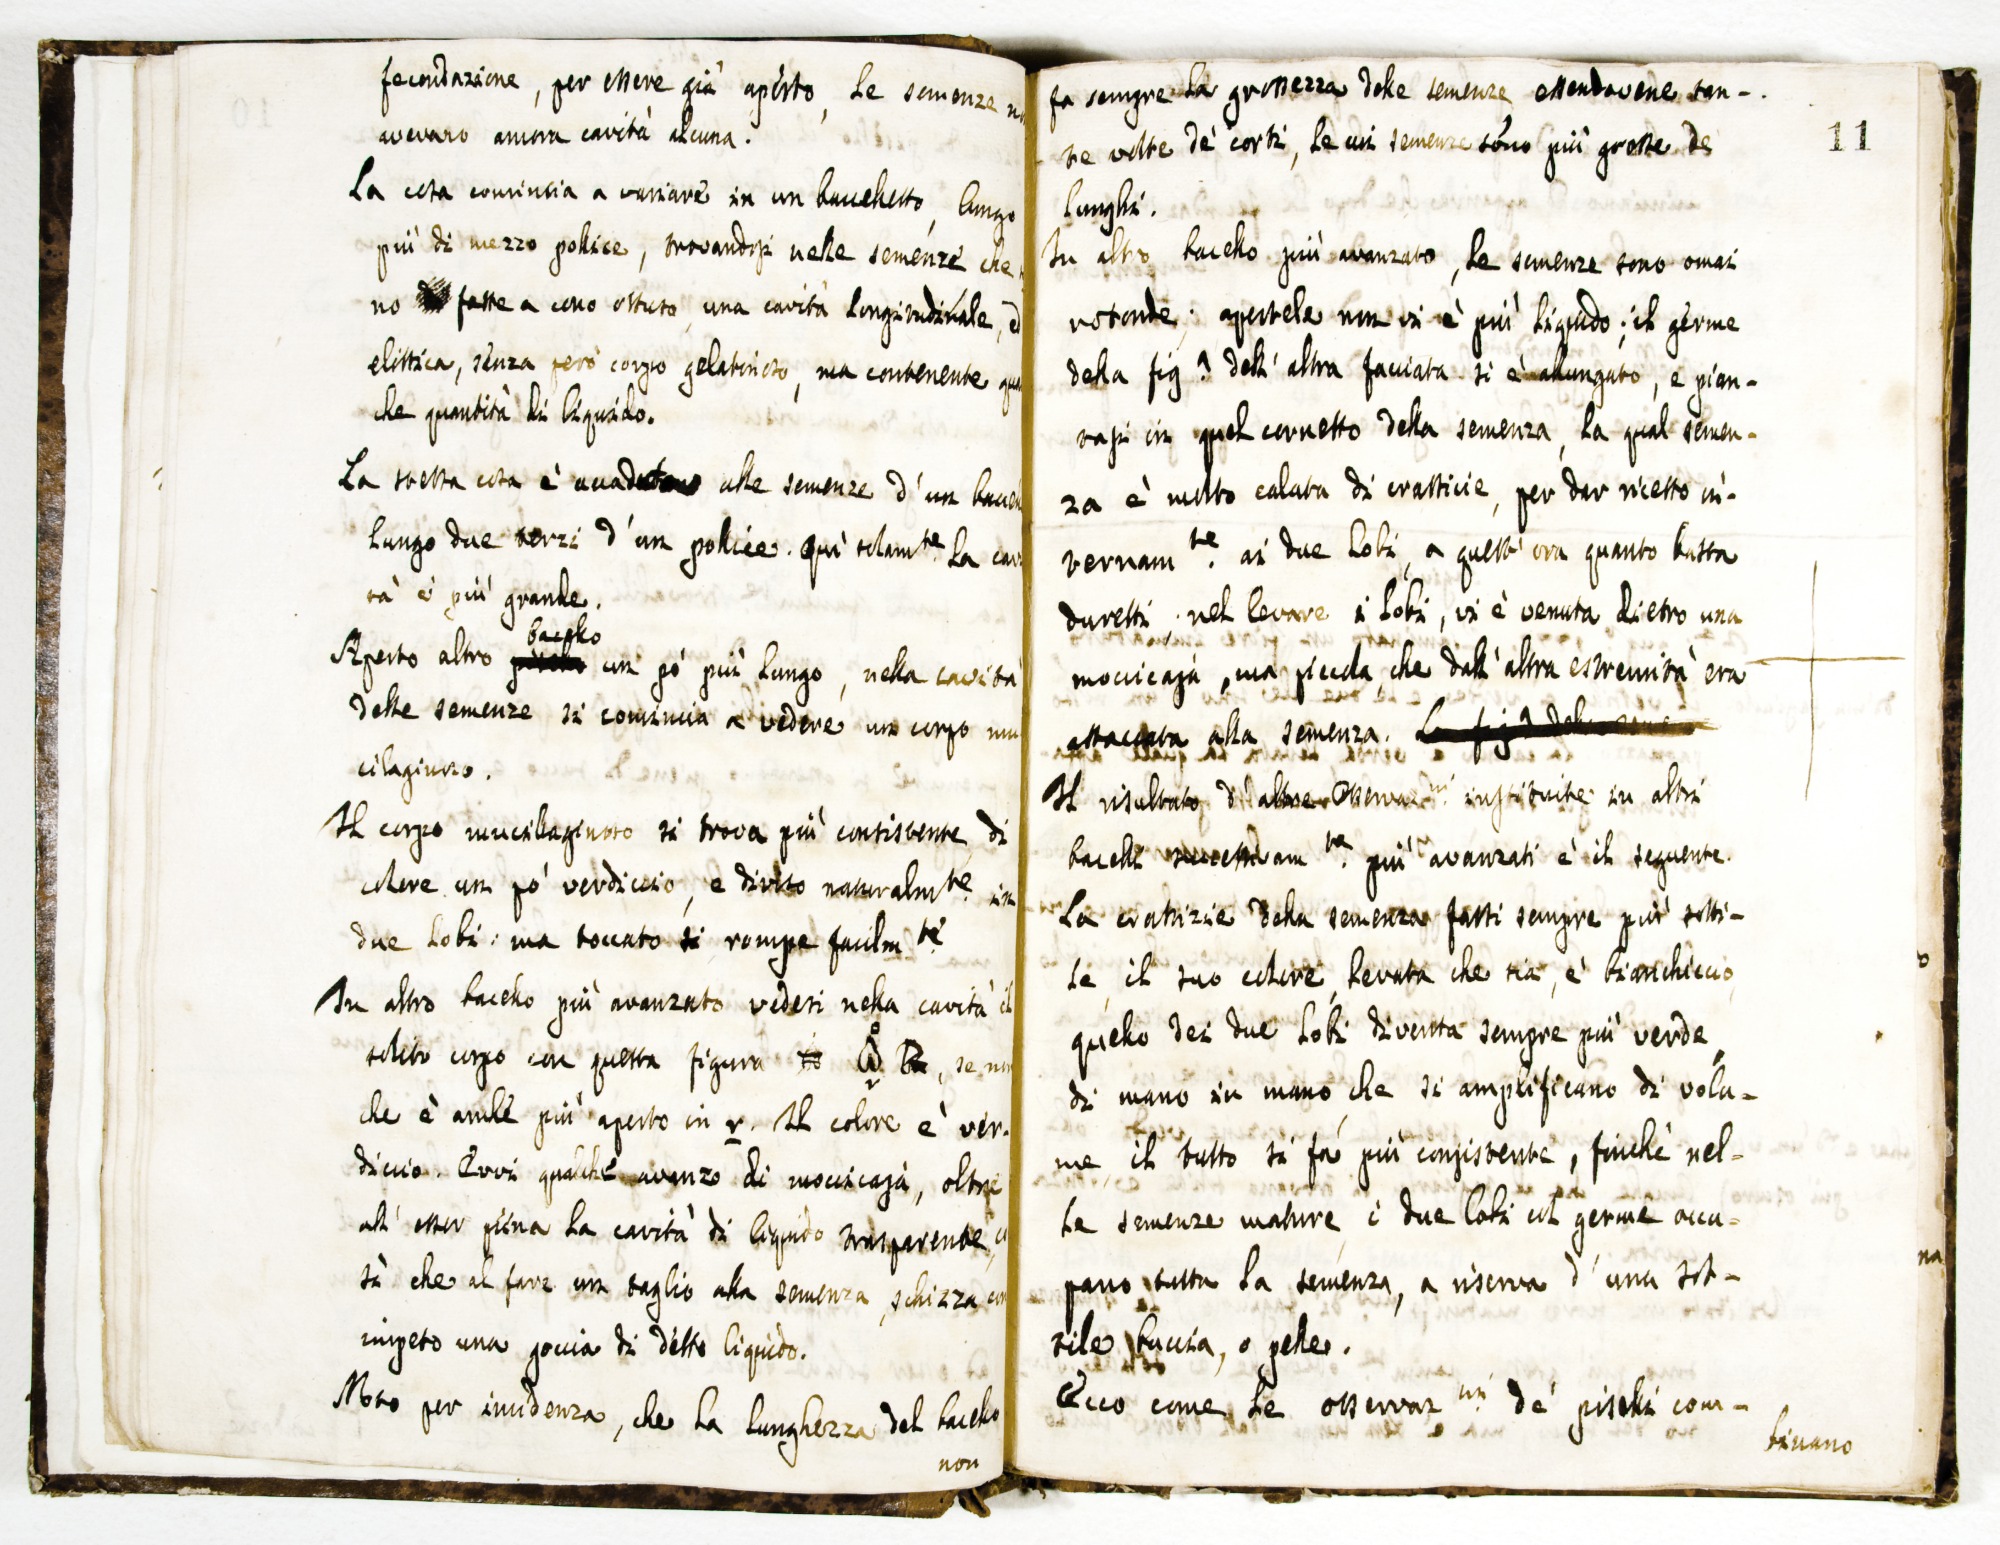 fecondazione, per essere già aperto, le semenze
avevano ancora cavità alcuna.
La cosa comincia a variare in un baccelletto, lungo
più di mezzo pollice, trovandosi nelle semenze che
no fatte a cono ottuso una cavità longitudinale, ed
elittica, senza però corpo gelatinoso, ma contenente
che quantità di liquido.
La stessa cosa è alle semenze d'un
lungo due terzi d'un pollice. Qui solamte la
tà è più grande.
baccello
Aperto altro un pò più lungo, nella cavità
delle semenze si comincia a vedere un corpo mu
cilaginoso.
Il corpo mucillaginoso si trova più consistente di
colore un pò verdiccio, e diviso naturalmte in
due lobi: ma toccato si rompe facilmte
In altro baccello più avanzato vedesi nella cavità il
solito corpo con questa figura, se non
che è anche più aperto in r. Il colore è ver-
diccio. Evvi qualche avanzo di moccicaja, oltre
all'esser piena la cavità di liquido trasparente, co
sì che al fare un taglio alla semenza, schizza con
impeto una goccia di detto liquido.
Noto per incidenza, che la lunghezza del baccello
non
11
fa sempre la grossezza delle semenze essendovene tan-
te volte de' corti, le cui semenze sono più grosse de
lunghi.
In altro baccello più avanzato, le semenze sono omai
rotonde; apertele non vi è più liquido; il germe
della fig? dell'altra facciata si è allungato, e pian-
tasi in quel cornetto della semenza, la qual semen-
za è molto calata di crassicie, per dar ricetto in-
ternamte. ai due lobi, a quest'ora quanto basta
duretti, nel levare i lobi, vi è venuta dietro una
moccicaja, ma piccola che dall'altra estremità era
attaccata alla semenza. La fig?
Il risultato d'altre Osservazni instituite in altri
bacelli successivamte. più avanzati è il seguente.
La crassizie della semenza fassi sempre più sotti-
le, il suo colore, levata che sia, è bianchiccio,
quello dei due lobi diventa sempre più verde,
di mano in mano che si amplificano di volu-
me, il tutto si fà più consistente, finchè nel-
le semenze mature, i due lobi col germe occu-
pano tutta la semenza, a riserva d'una sot-
tile buccia, o pelle.
Ecco come le osservazni de' piselli com-
binano